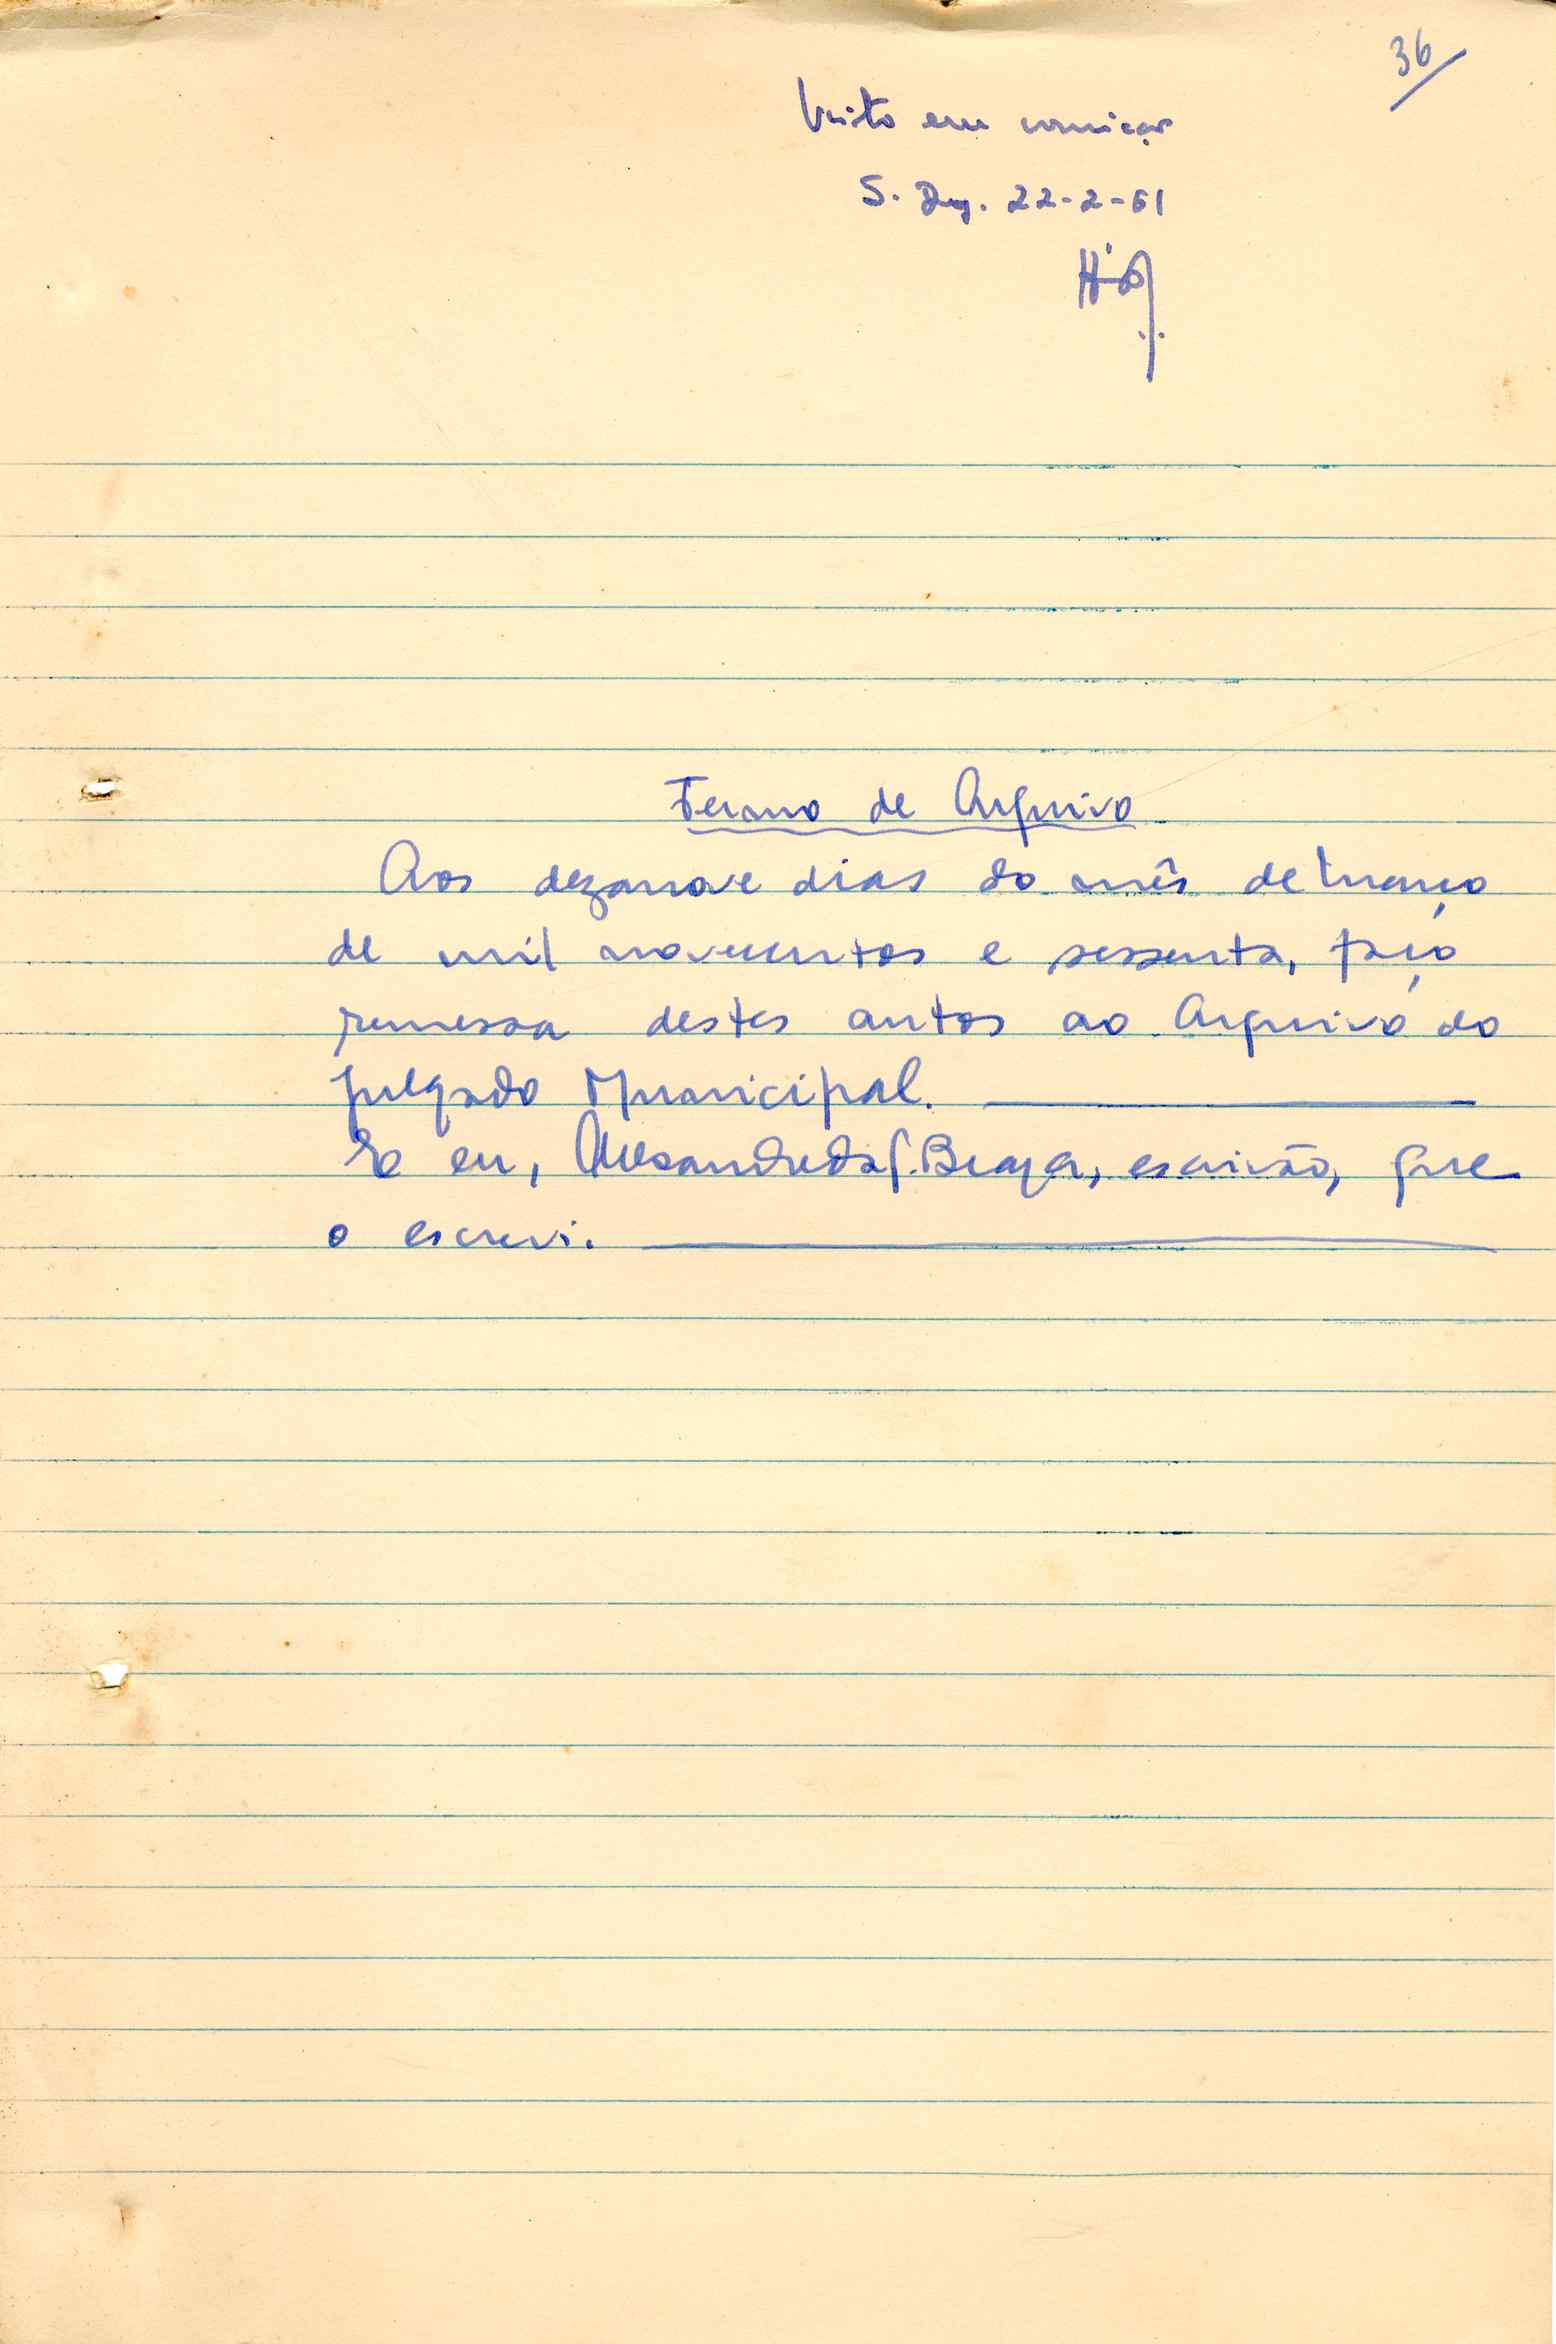 36
Visto em correição
S. Dgs. 22-2-61
Termo de Arquivo
Aos dezanove dias do mês de Março
de mil novecentos e sessenta, faço
remessa destes autos ao Arquivo do
Julgado Municipal.
E eu, Alexandre da S. Braga, escrivão, que
o escrevi.